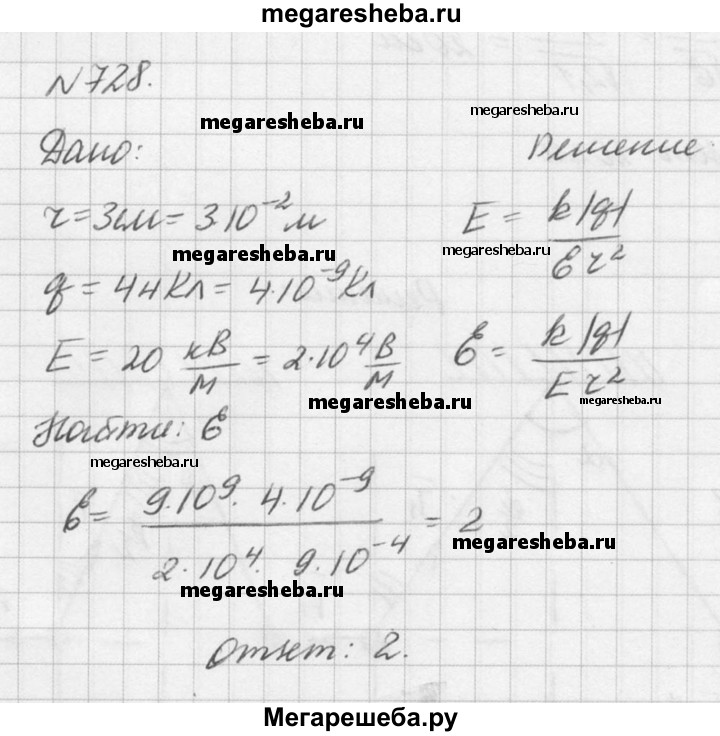 megaresheba.ru
N728.
megaresheba.ru
megaresheba.ru
Дано:
Решение:
r = 3см = 3·10⁻² м
E = k|q| / εr²
megaresheba.ru
megaresheba.ru
q = 4нКл = 4·10⁻⁹ Кл
E = 20 кВ/м = 2·10⁴ В/м
ε = k|q| / Er²
megaresheba.ru
megaresheba.ru
Найти: ε
megaresheba.ru
ε = 9·10⁹·4·10⁻⁹ / 2·10⁴·9·10⁻⁴ = 2
megaresheba.ru
megaresheba.ru
Ответ: 2.
Мегарешеба.ру